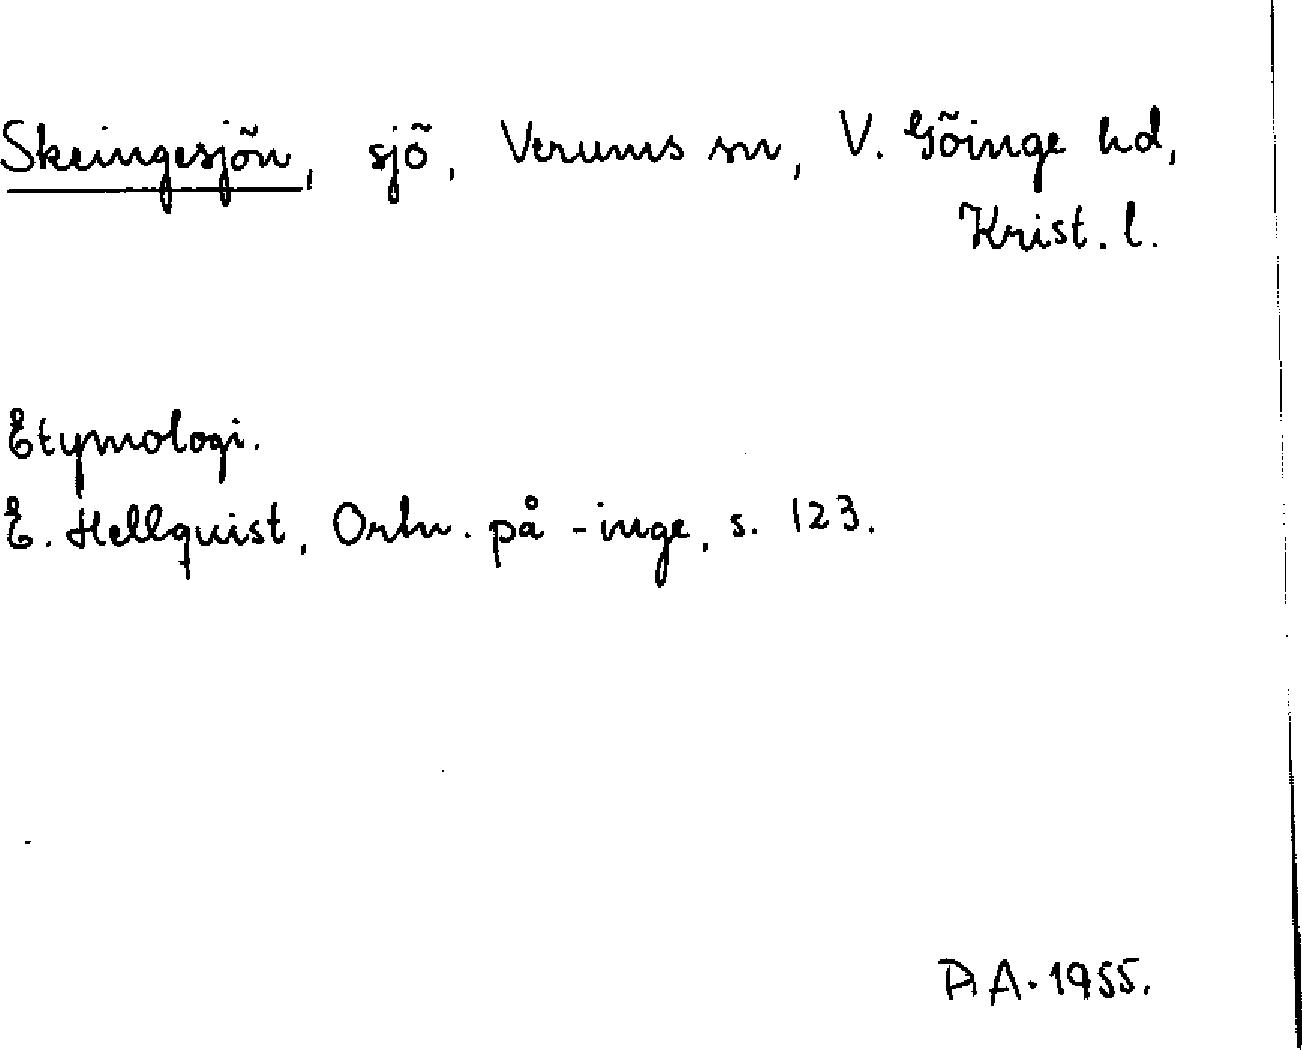 Skeingesjön, sjö, Verums sn, V. Göinge hd,
Krist. l.
Etymologi.
E. Hellquist, Ortn. på -inge, s. 123.
A. 1955.